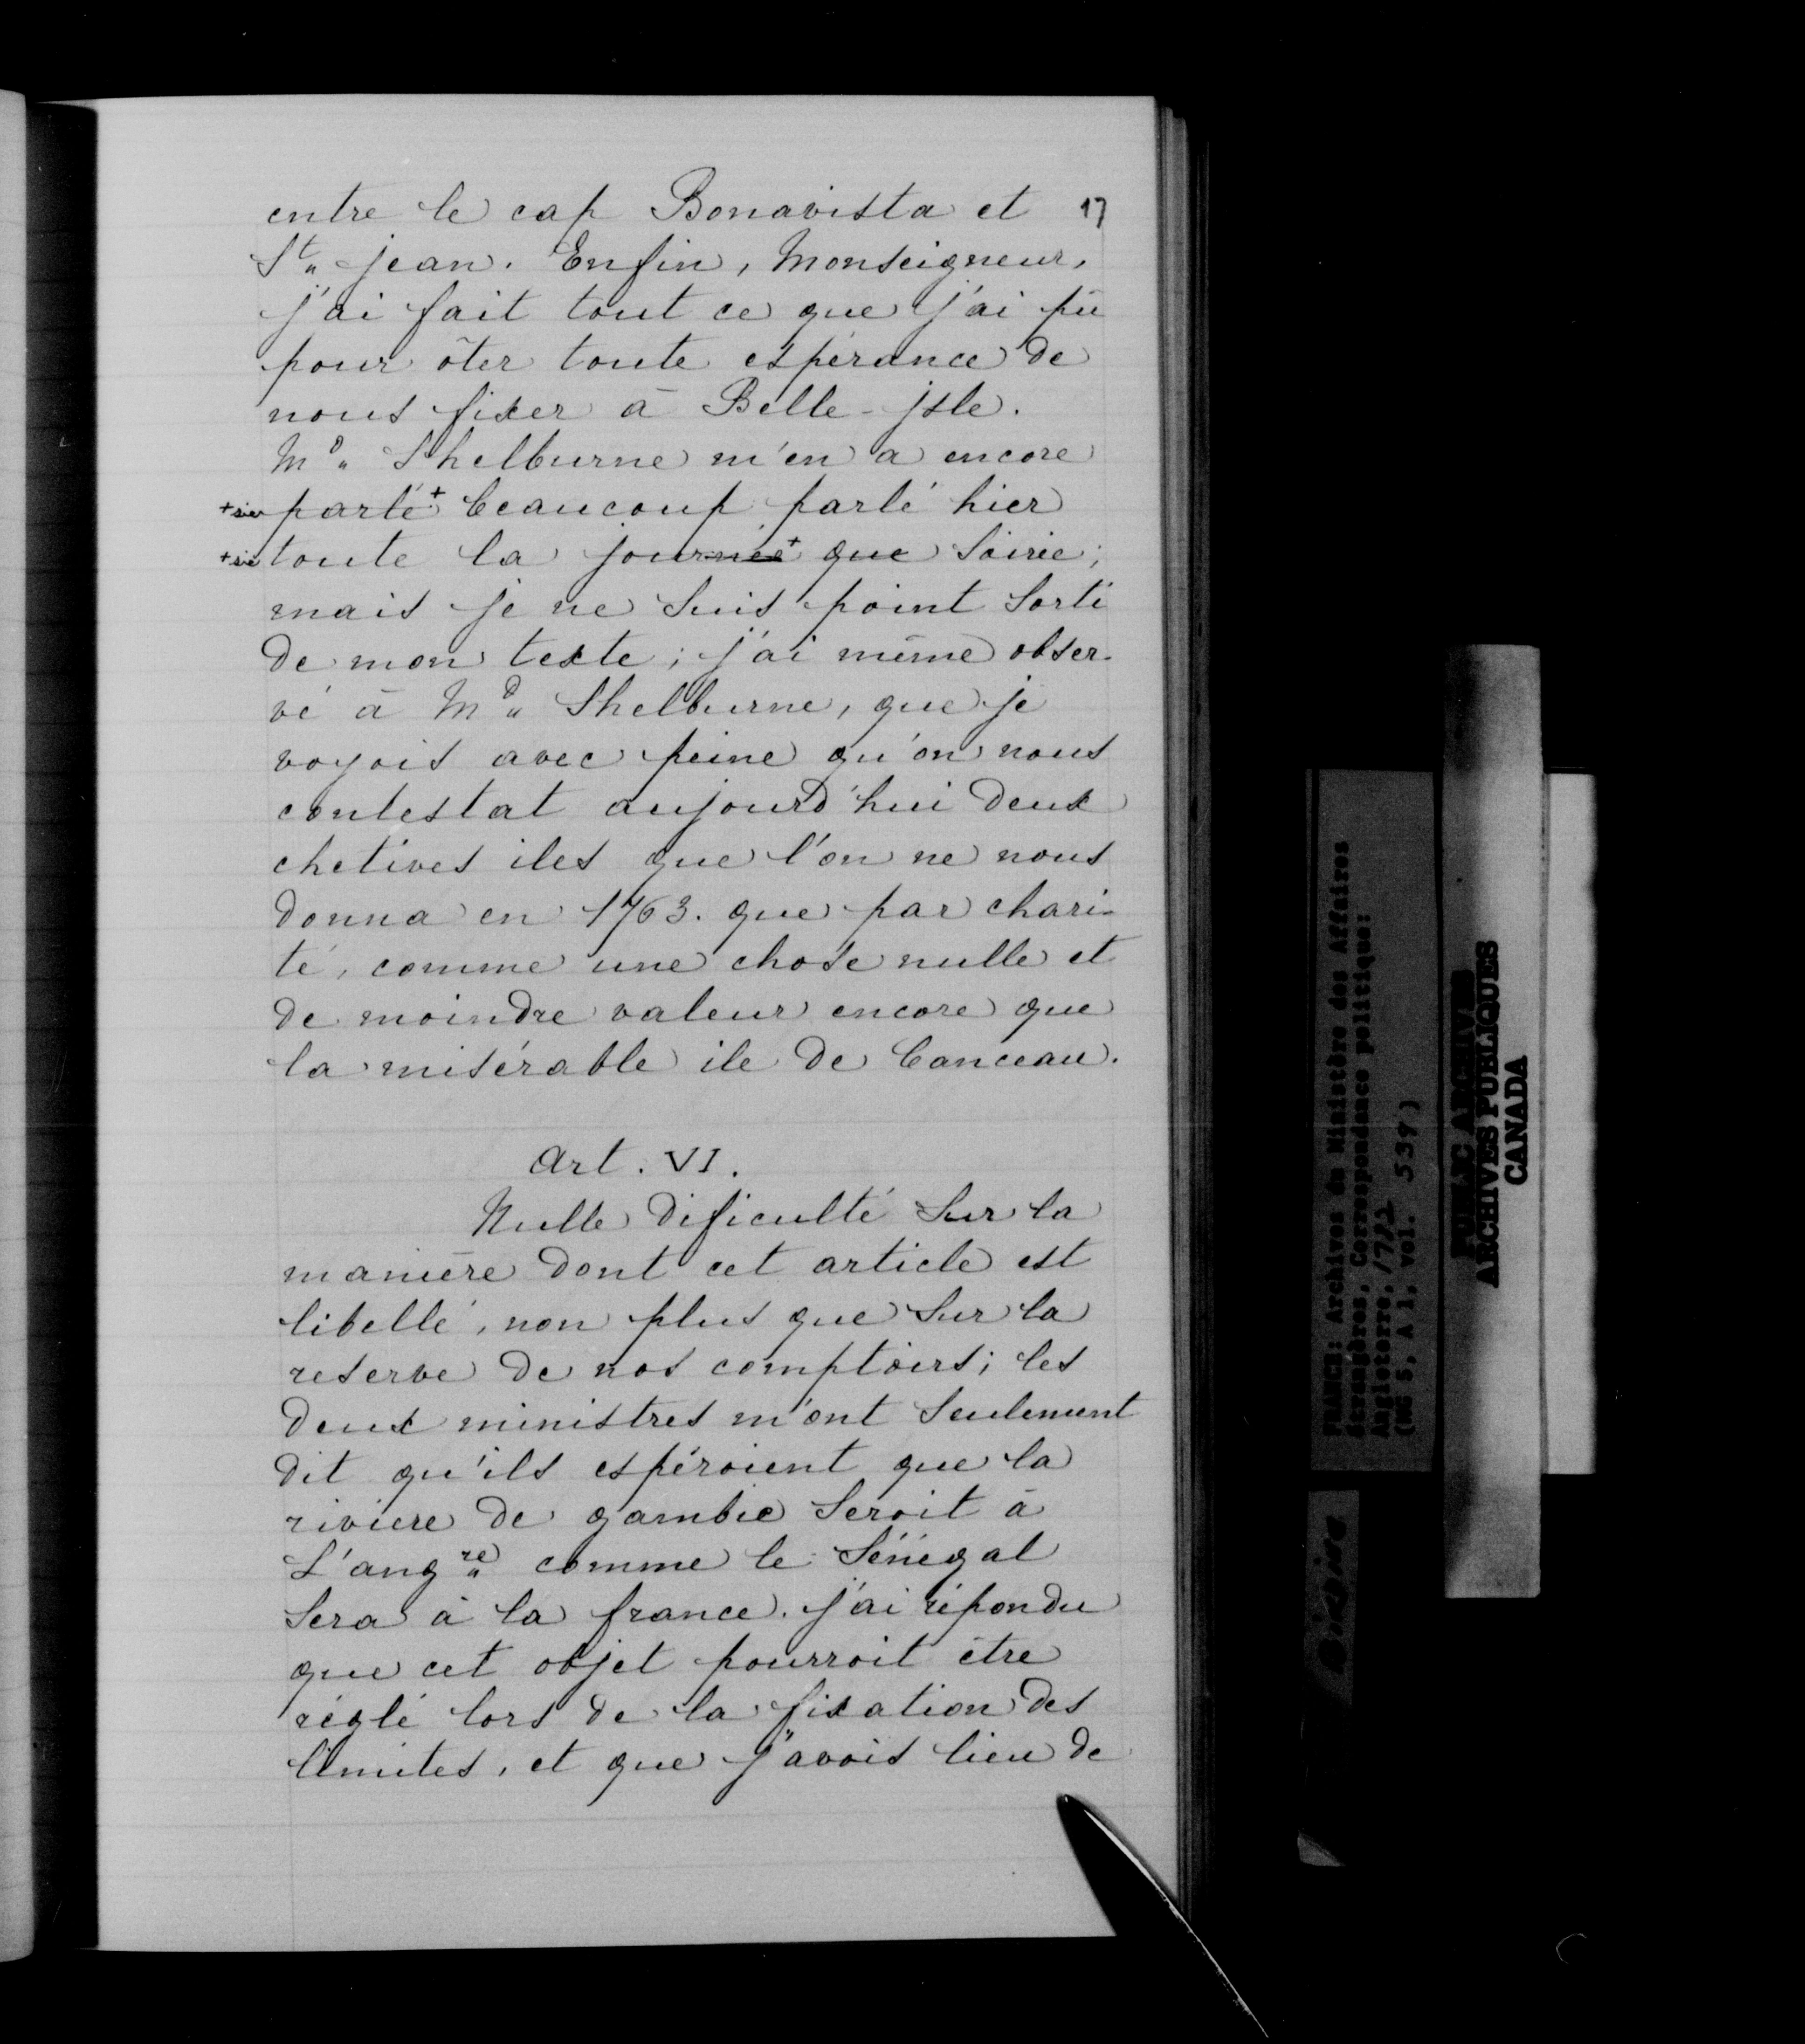 entre le cap Bonavista et 17
St„ jean. Enfin, Monseigneur,
j'ai fait tout ce que j'ai pû
pour ôter toute espérance de
nous fixer à Belle-jsle.
Md„ Shelburne m'en a encore
+sic parlé+ beaucoup parlé hier
+sic toute la journée+ que Soirée;
mais je ne Suis point Sorti
de mon texte; j'ai même obser-
vé à Md„ Shelburne, que je
voyois avec peine qu'on nous
contestat aujourd'hui deux
chetives iles que l'on ne nous
donna en 1763. que par chari-
té, comme une chose nulle et
de moindre valeur encore que
la misérable ile de Canceau.
Art. VI.
Nulle dificulté Sur la
manière dont cet article est
libellé, non plus que Sur la
reserve de nos comptoirs; les
deux ministres m'ont Seulement
dit qu'ils espéroient que la
riviere de gambie Seroit à
L'angre„ comme le Sénégal
Sera à la france. j'ai répondu
que cet objet pourroit être
réglé lors de la fixation des
limites, et que j'avois lieu de
FRANCE: Archives du Ministère des Affaires
étrangères, Correspondance politique:
Angleterre, 1782
(MG 5, A 1, vol. 537)
PUBLIC ARCHIVES
ARCHIVES PUBLIQUES
CANADA